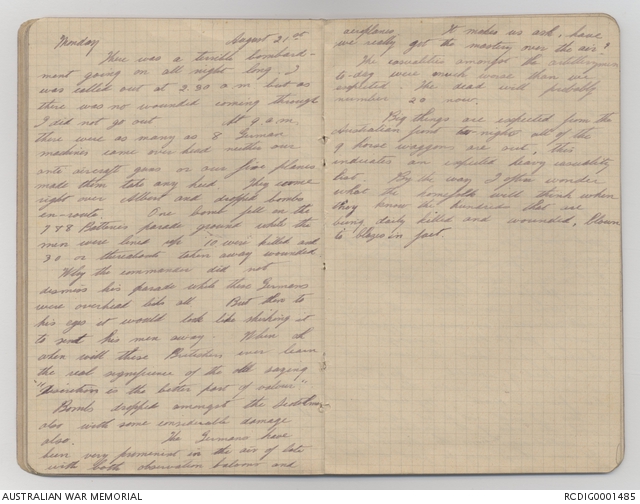 Monday August 21st
There was a terrible bombard-
ment going on all night long. I
was called out at 2.30 a m but as
there was no wounded coming through
I did not go out At 9 a.m.
there were as many as 8 German
machines came over head neither our
ante aircraft guns or our five planes
made them take any heed They come
right over Albert and dropped bombs
en-route. One bomb fell in the
Batteries parade ground while the
men were lined up 10 were killed and
30 or thereabouts taken away wounded
Why the commander did not
dismiss his parade while these Germans
were overhead like all But then to
his eyes it would look like shirking it
to send his men away. When oh
when will these Britishers ever learn
the real significence of the old saying
"Discretion is the better part of valour"
Bombs dropped amongst the
also with some considerable damage
also. The Germans have
been very prominent in the air of late
with both observation baloons and
aeroplanes It makes us ask, have
we really got the mastery over the air?
The casualities amongst the artillerymen
to-day were much worse than we
expected. The dead will probably
number 20 now.
Big things are expected from the
Australian front to-night all of the
9 horse waggons are out, this
indicates an expected heavy casuality
list By the way I often wonder
what the homefolk will think when
they know the hundreds that are
being daily killed and wounded, blown
to blazes in fact
AUSTRALIAN WAR MEMORIAL
RCDIG0001485